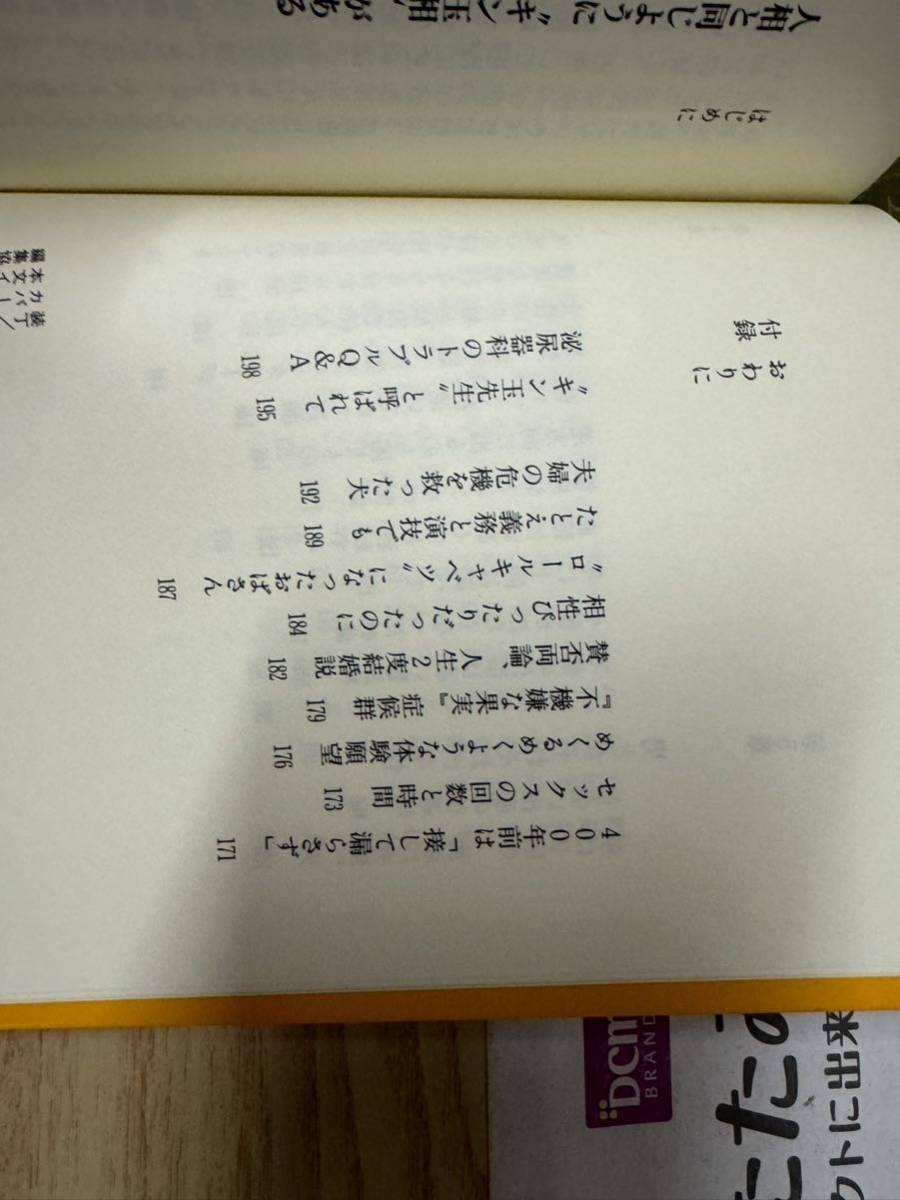 400年前は「接して漏らさず」 171
セックスの回数と時間 173
めくるめくような体験願望 176
『不機嫌な果実』症候群 179
賛否両論、人生2度結婚説 182
相性ぴったりだったのに 184
〝ロールキャベツ〟になったおばさん 187
たとえ義務と演技でも 189
夫婦の危機を救った犬 192
おわりに 〝キン玉先生〟と呼ばれて 195
付録 泌尿器科のトラブルQ&A 198
装丁/
カバー
本文イ
編集協
はじめに
人相と同じように〝キン玉相〟がある
DCM
BRAND
トに出来